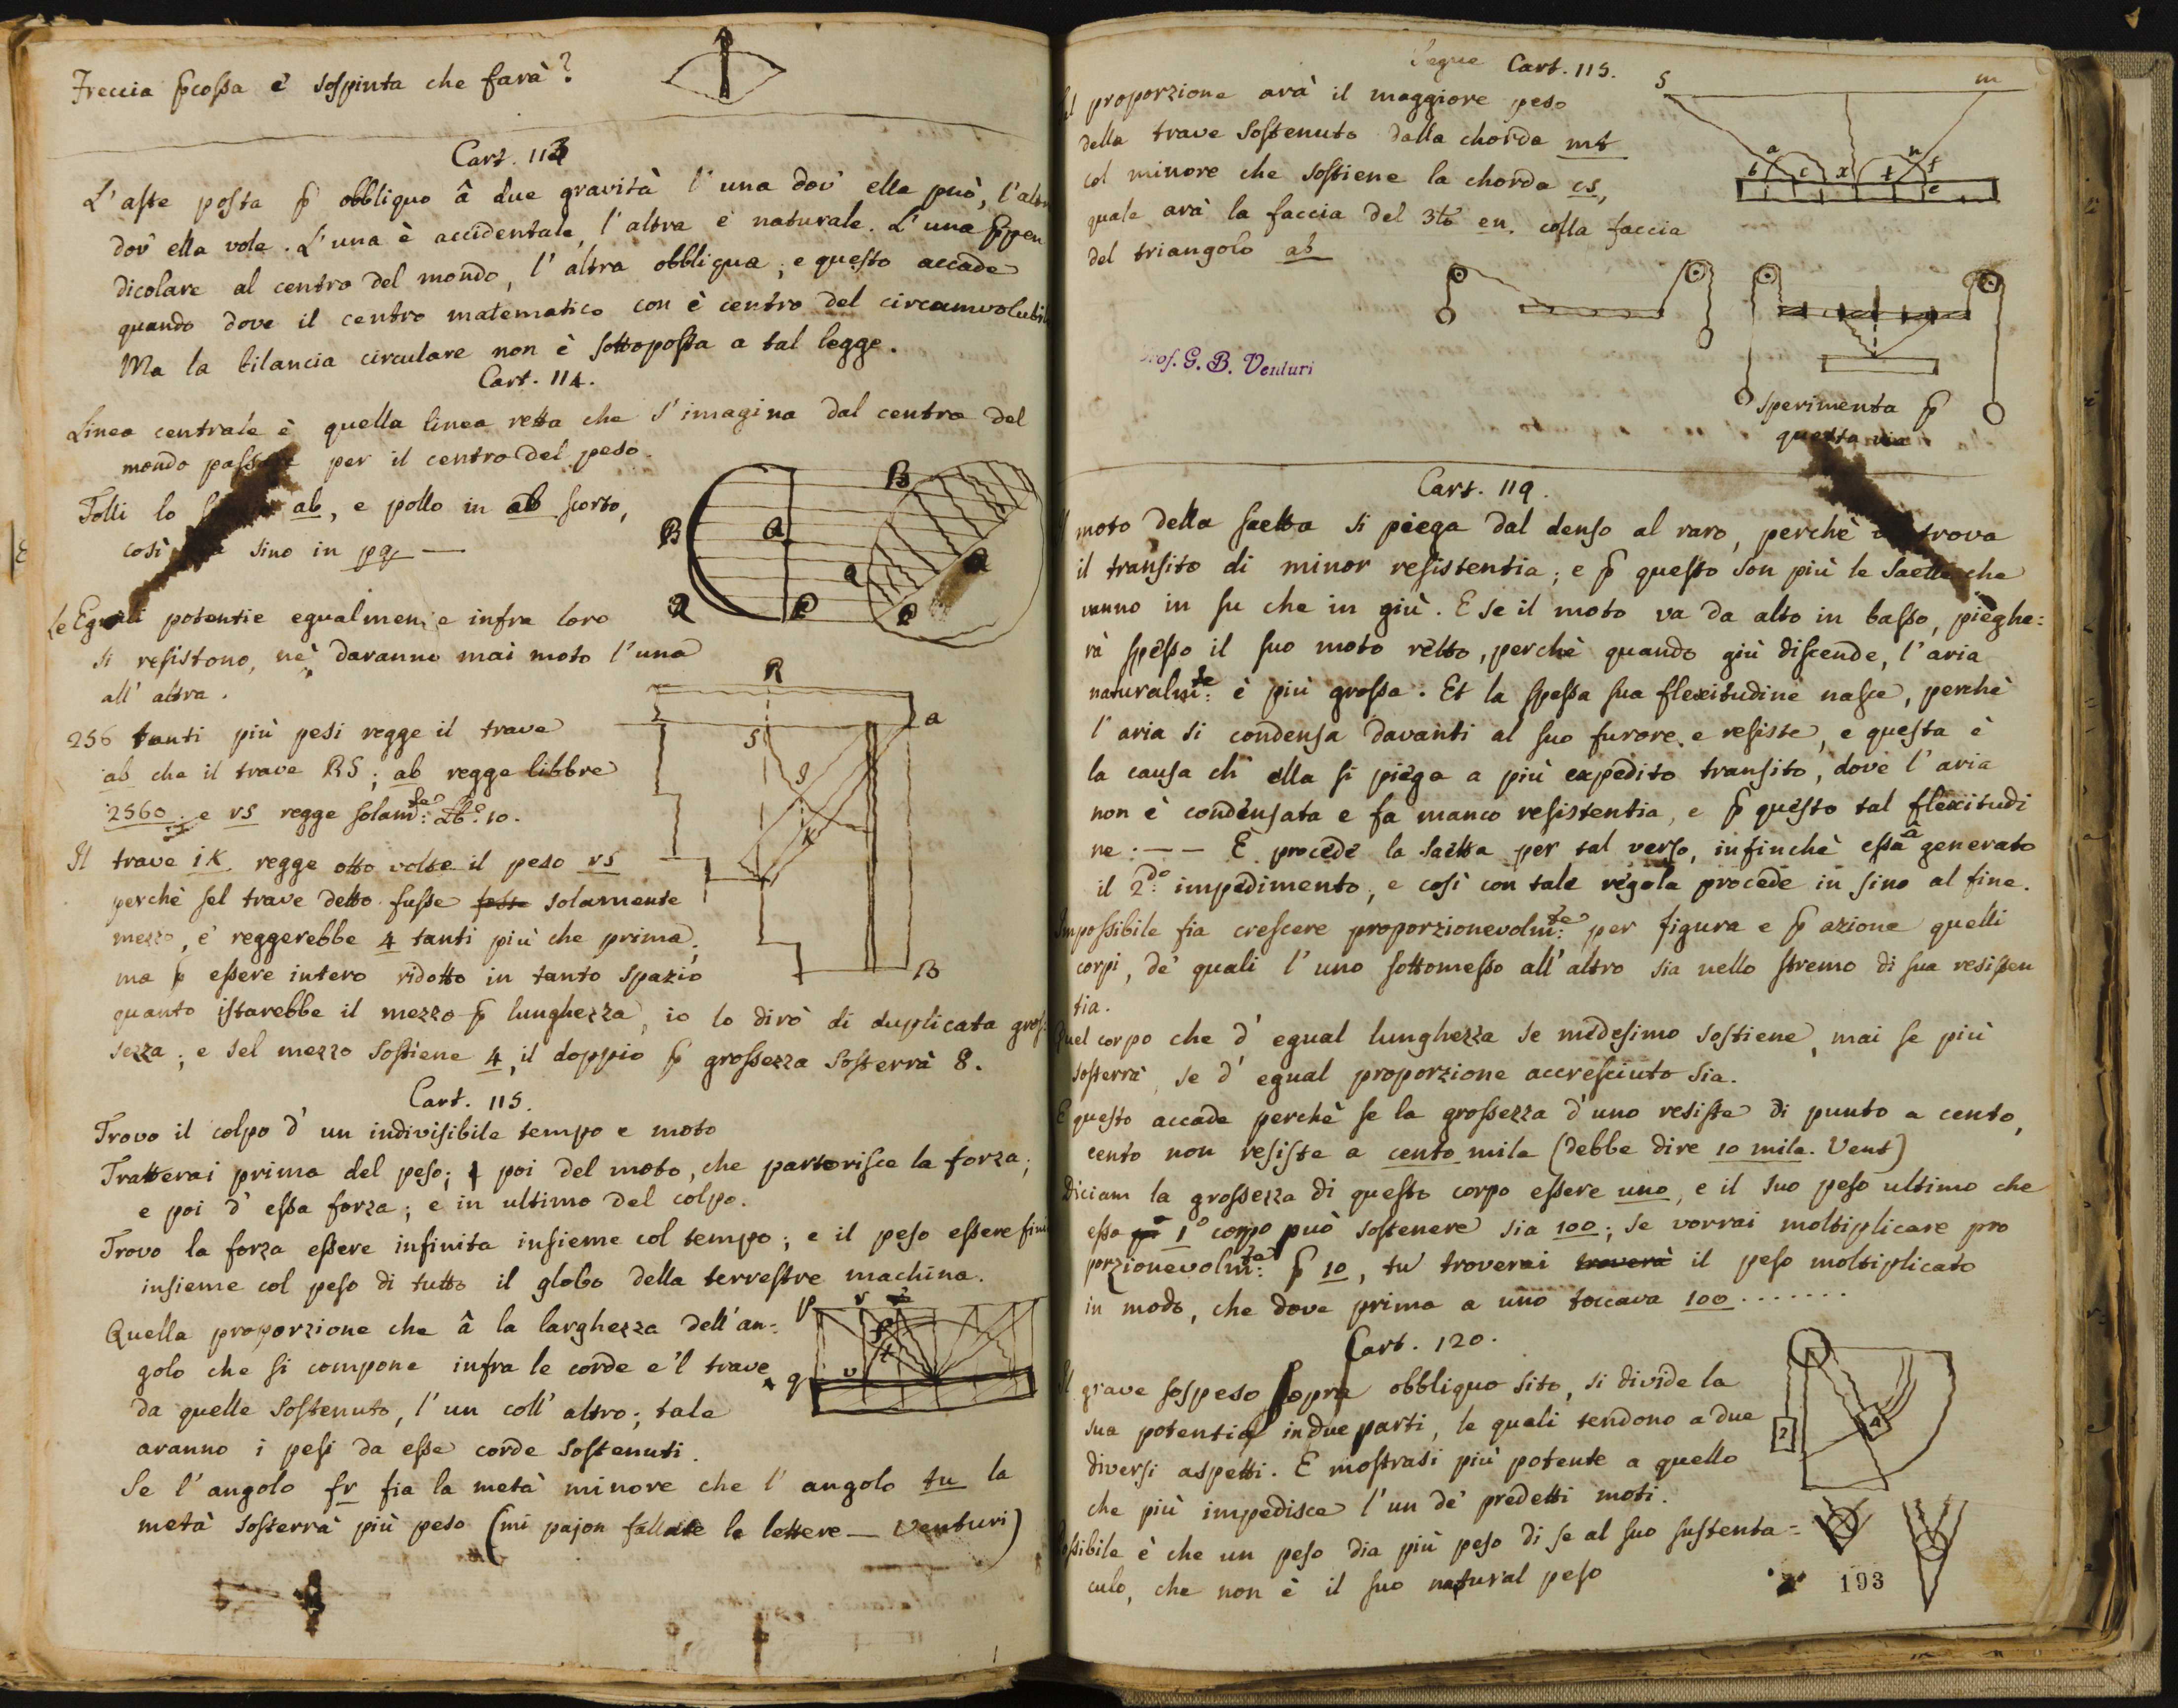 Freccia ꝑcossa e sospinta che farà?
Cart. 113
L'aste posta ꝑ obbliquo â due gravità l'una dov' ella può, l'altra
dov' ella vole. L'una è accidentale, l'altra è naturale. L'una ꝑpen
dicolare al centro del mondo, l'altra obbliqua; e questo accade
quando dove il centro matematico con è centro del circumvolubi
Ma la bilancia circulare non è sottoposta a tal legge.
Cart. 114.
Linea centrale è quella linea retta che s'imagina dal centro del
mondo per il centro del peso.
Tolli lo ab, e pollo in ab scorto,
così sino in pq —
Le Eguali potentie egualmente infra loro
si resistono, nè daranno mai moto l'una
all' altra.
256 tanti più pesi regge il trave
ab che il trave RS; ab regge libbre
2560. e rs regge solam:te Lb.e 10.
Il trave iK regge otto volte il peso rs
perchè sel trave detto fusse solamente
mezzo, e' reggerebbe 4 tanti più che prima;
ma ꝑ essere intero ridotto in tanto spazio
quanto istarebbe il mezzo ꝑ lunghezza, io lo dirò di duplicata gros:
sezza; e sel mezzo sostiene 4, il doppio ꝑ grossezza sosterrà 8.
Cart. 115.
Trovo il colpo d' un indivisibile tempo e moto
Tratterai prima del peso; poi del moto, che partorisce la forza;
e poi d' essa forza; e in ultimo del colpo.
Trovo la forza essere infinita insieme col tempo; e il peso essere fini
insieme col peso di tutto il globo della terrestre machina.
Quella proporzione che â la larghezza dell'an:
golo che si compone infra le corde e 'l trave
da quelle sostenuto, l'un coll' altro; tale
aranno i pesi da esse corde sostenuti.
Se l'angolo fr fia la metà minore che l'angolo tu la
metà sosterrà più peso (mi pajon fallate le lettere — Venturi)
B
a
B
R
P
a
a
P
R
a
S
I
K
B
p
r
f
t
q
v
Segue Cart. 115.
Tal proporzione arà il maggiore peso
della trave sostenuto dalla chorda mt
col minore che sostiene la chorda cs,
quale arà la faccia del 3to en. colla faccia
del triangolo ab
S
m
a
n
b
c
x
t
f
e
Prof. G. B. Venturi
sperimenta ꝑ
questa via
Cart. 119.
Il moto della saetta si piega dal denso al raro, perchè trova
il transito di minor resistentia; e ꝑ questo son più le saette che
vanno in su che in giù. E se il moto va da alto in basso, pieghe:
rà spesso il suo moto retto, perchè quando giù discende, l'aria
naturalm:te è più grossa. Et la spessa sua flexitudine nasce, perchè
l'aria si condensa davanti al suo furore e resiste, e questa è
la causa ch' ella si piega a più expedito transito, dove l'aria
non è condensata e fa manco resistentia, e ꝑ questo tal flexitudi
ne. — — E procede la saetta per tal verso, infinchè essa â generato
il 2do impedimento, e così con tale regola procede in sino al fine.
Impossibile fia crescere proporzionevolm:te per figura e ꝑ azione quelli
corpi, de' quali l'uno sottomesso all'altro sia nello stremo di sua resisten
tia.
Quel corpo che d' egual lunghezza se medesimo sostiene, mai se più
sosterrà, se d' egual proporzione accresciuto sia.
E questo accade perchè se la grossezza d'uno resiste di punto a cento,
cento non resiste a cento mila (debbe dire 10 mila. Vent)
Diciam la grossezza di questo corpo essere uno, e il suo peso ultimo che
esso 1o corpo può sostenere sia 100; se vorrai moltiplicare pro
porzionevolm:te ꝑ 10, tu troverai troverà il peso moltiplicato
in modo, che dove prima a uno toccava 100.......
Cart. 120.
Il grave sospeso sopra obbliquo sito, si divide la
sua potentia in due parti, le quali tendono a due
diversi aspetti. E mostrasi più potente a quello
che più impedisce l'un de' predetti moti.
Possibile è che un peso dia più peso di se al suo sustenta=
culo, che non è il suo natural peso
2
4
193